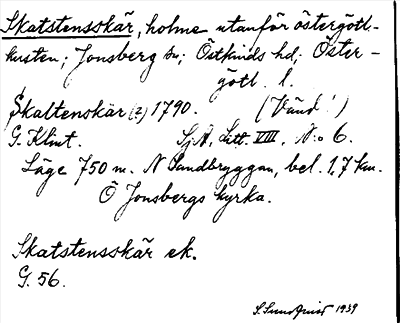 Skatstensskär, holme utanför östergötl-
kusten; Jonsberg sn; Östkinds hd; Öster-
götl. l.
Skaltenskär (?) 1790. (Vänd!)
G. Klint. SjA. Litt. VIII, No 6.
Läge 750 m. N Sandbryggan, bel. 1,7 km.
Ö Jonsbergs kyrka.
Skatstensskär ek.
G. 56.
S. Sundqvist 1939